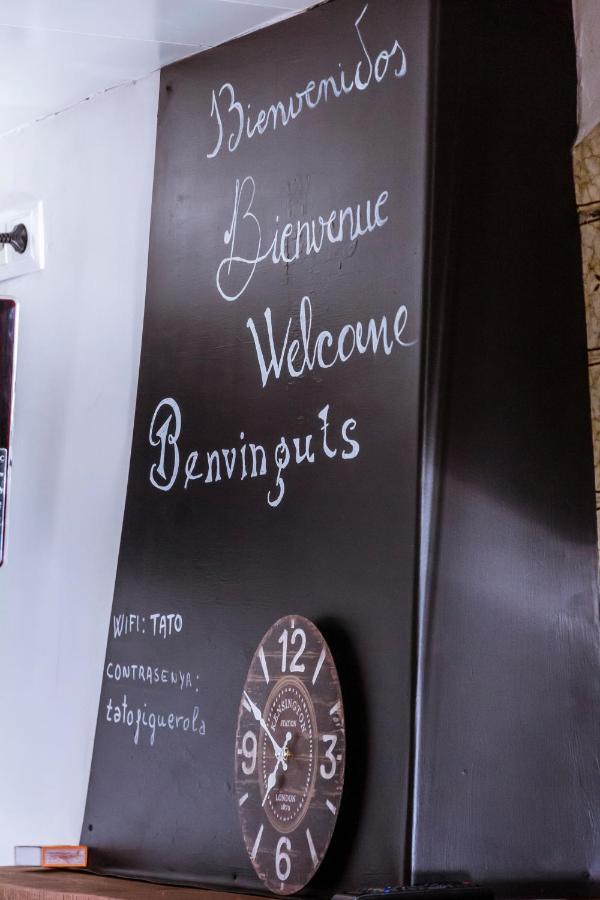 Bienvenidos
Bienvenue
Welcome
Benvinguts
WIFI: TATO
CONTRASENYA:
tatofiguerola
12
3
6
9
KENSINGTON
STATION
LONDON
1879